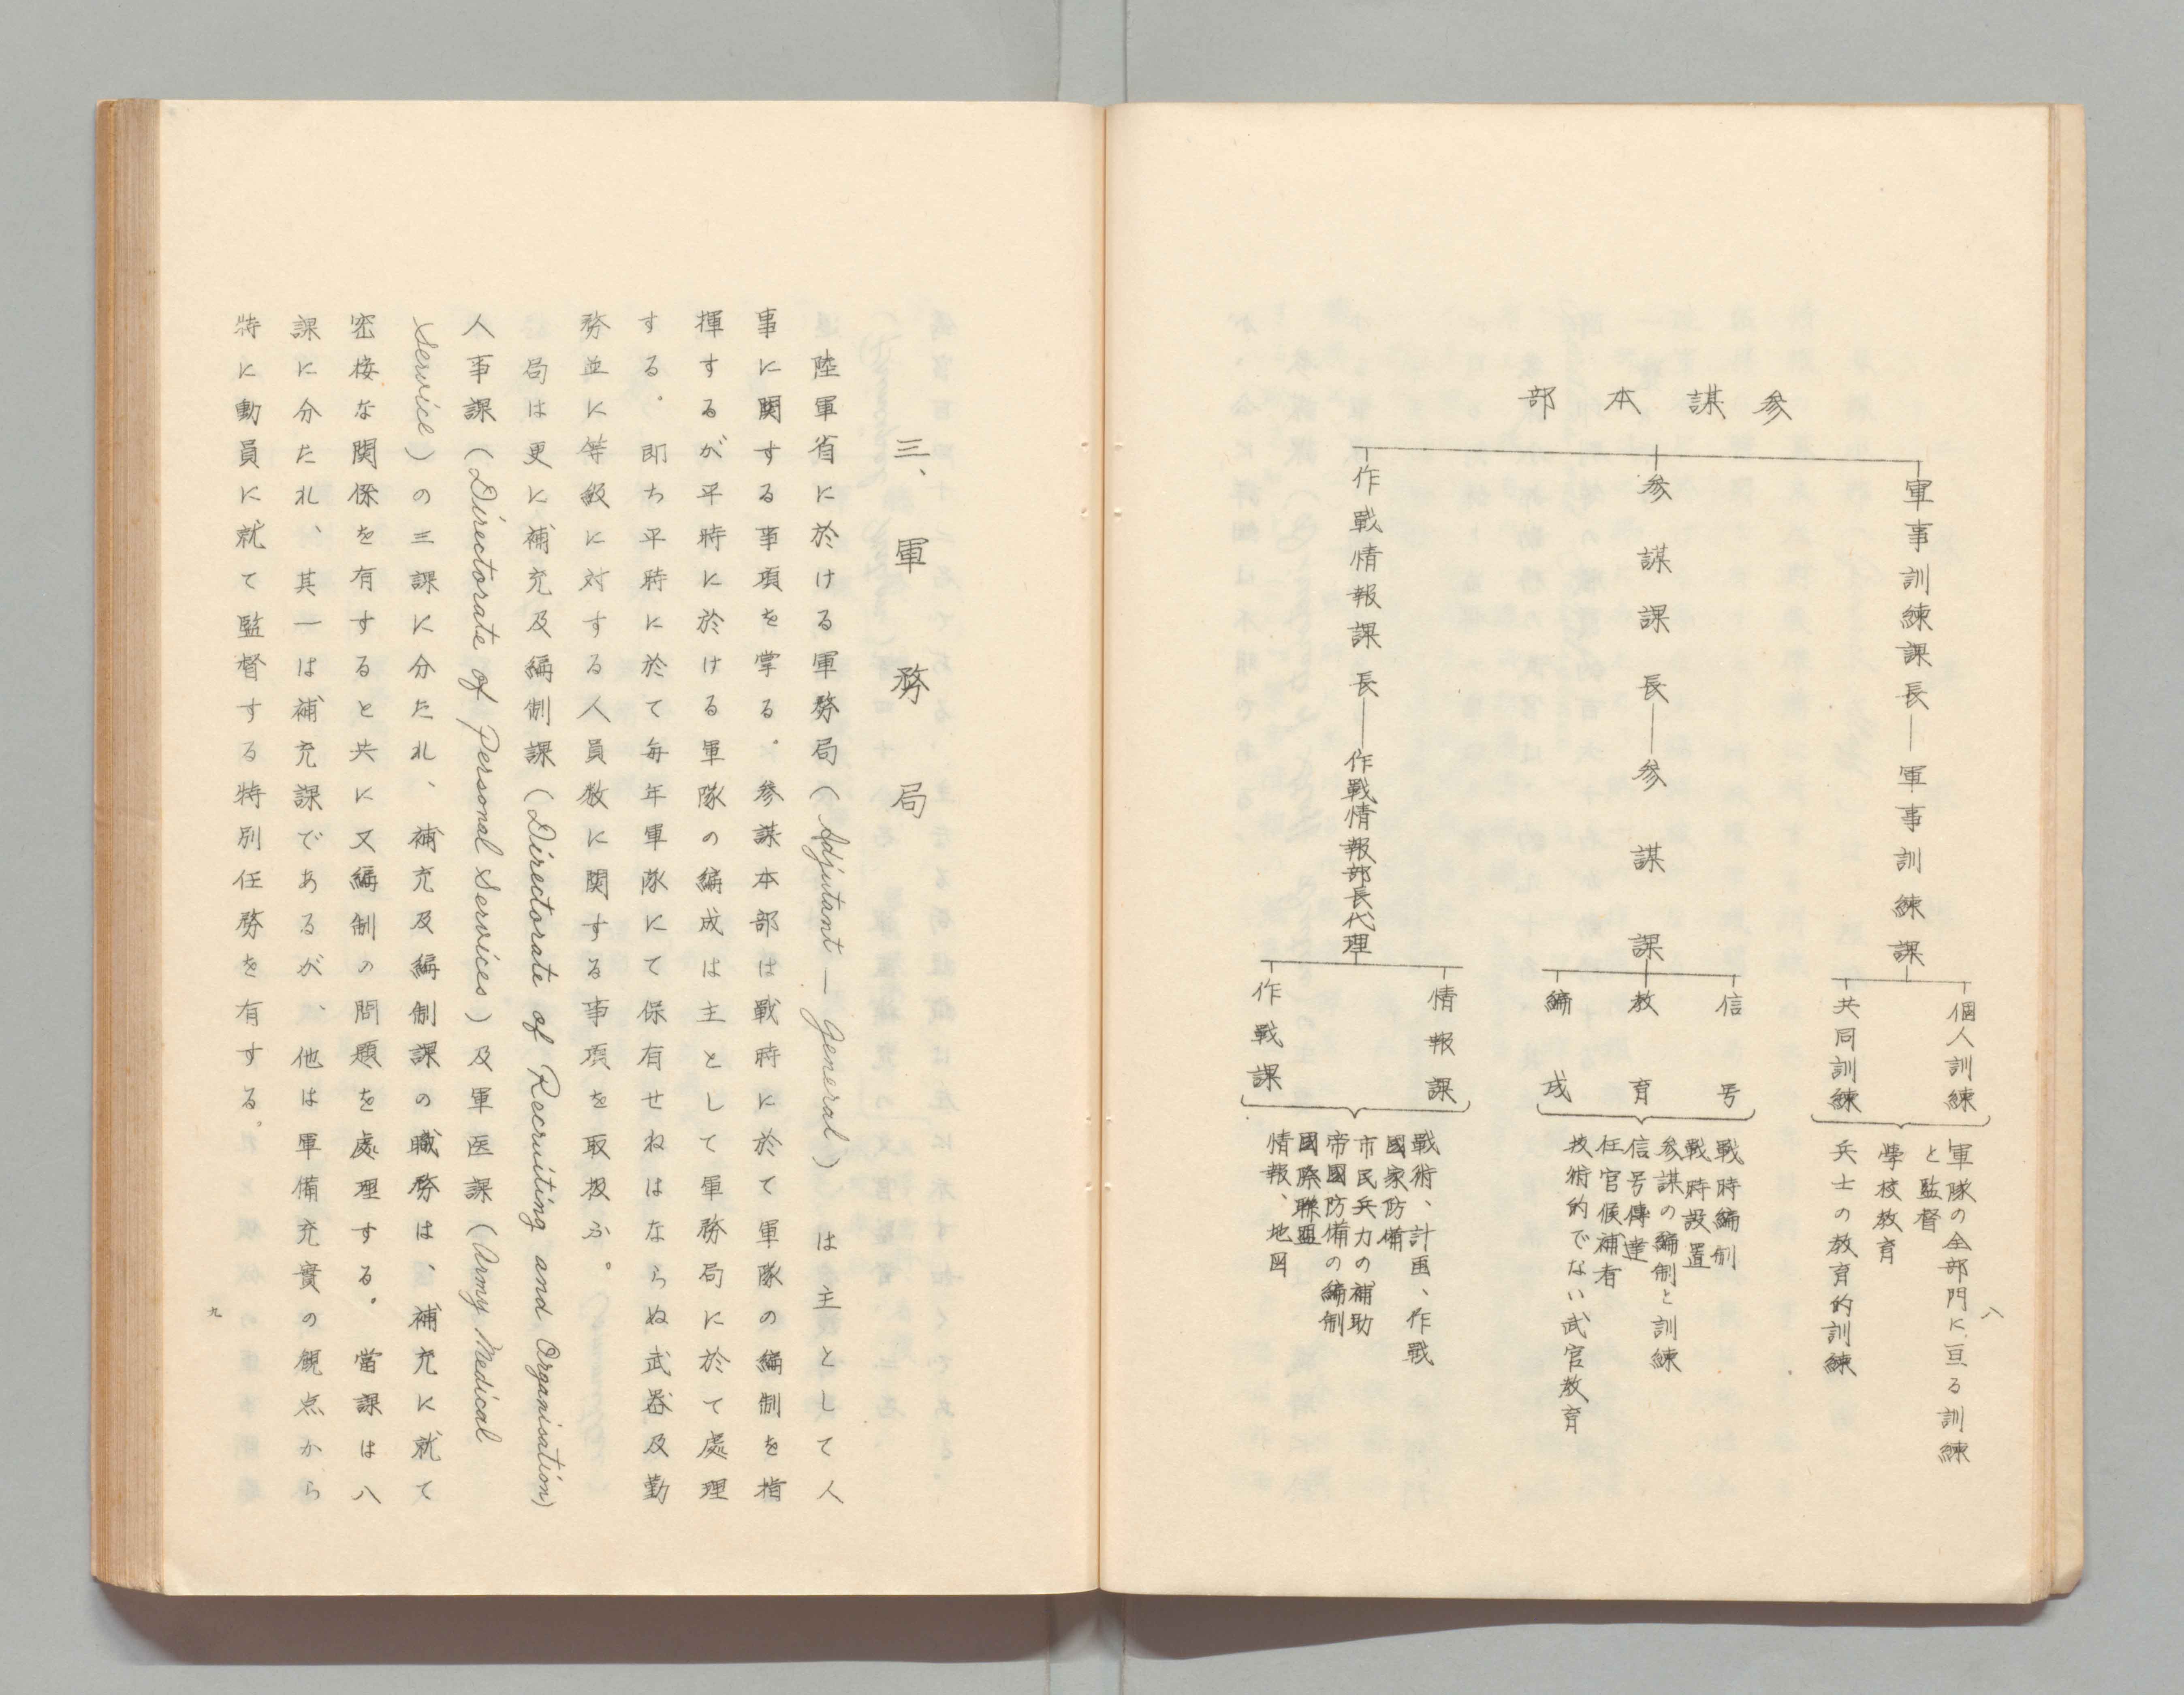 八
参謀本部
軍事訓練課長―軍事訓練課
個人訓練
共同訓練
軍隊の全部門に亘る訓練
と監督
學校教育
兵士の教育的訓練
参謀課長―参謀課
信号
教育
編成
戰時編制
戰時設置
参謀の編制と訓練
信号傳達
任官候補者
技術的でない武官教育
作戰情報課長―作戰情報部長代理
情報課
作戰課
戰術、計画、作戰
國家防備
市民兵力の補助
帝國防備の編制
國際聯盟
情報、地図
三、軍務局
陸軍省に於ける軍務局(Adjutant—General)は主として人
事に関する事項を掌る。参謀本部は戰時に於て軍隊の編制を指
揮するが平時に於ける軍隊の編成は主として軍務局に於て處理
する。即ち平時に於て毎年軍隊にて保有せねばならぬ武器及勤
務並に等級に対する人員数に関する事項を取扱ふ。
局は更に補充及編制課(Directorate of Recruiting and Organisation)
人事課(Directorate of Personal Services)及軍医課(Army Medical
Service)の三課に分たれ、補充及編制課の職務は、補充に就て
密接な関係を有すると共に又編制の問題を處理する。當課は八
課に分たれ、其一は補充課であるが、他は軍備充實の観点から
特に動員に就て監督する特別任務を有する。
九